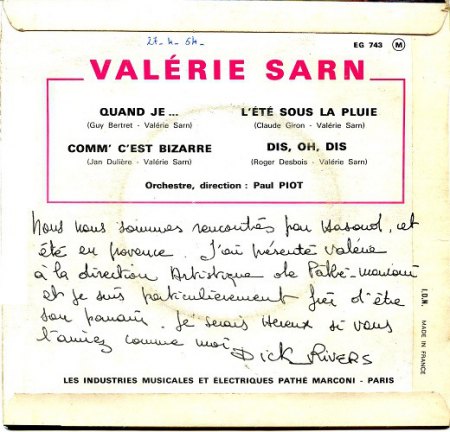 27-4-64-
EG 743 M
VALÉRIE SARN
QUAND JE ... L'ÉTÉ SOUS LA PLUIE
(Guy Bertret - Valérie Sarn) (Claude Giron - Valérie Sarn)
COMM' C'EST BIZARRE DIS, OH, DIS
(Jan Dulière - Valérie Sarn) (Roger Desbois - Valérie Sarn)
Orchestre, direction : Paul PIOT
Nous nous sommes rencontrés par hasard, cet
été en provence. J'ai présenté valérie
à la direction Artistique de Pathé-marconi
et je suis particulièrement fier d'être
son parrain. Je serais heureux si vous
l'aimiez comme moi
Dick Rivers
LES INDUSTRIES MUSICALES ET ÉLECTRIQUES PATHÉ MARCONI - PARIS
I.D.N. MADE IN FRANCE